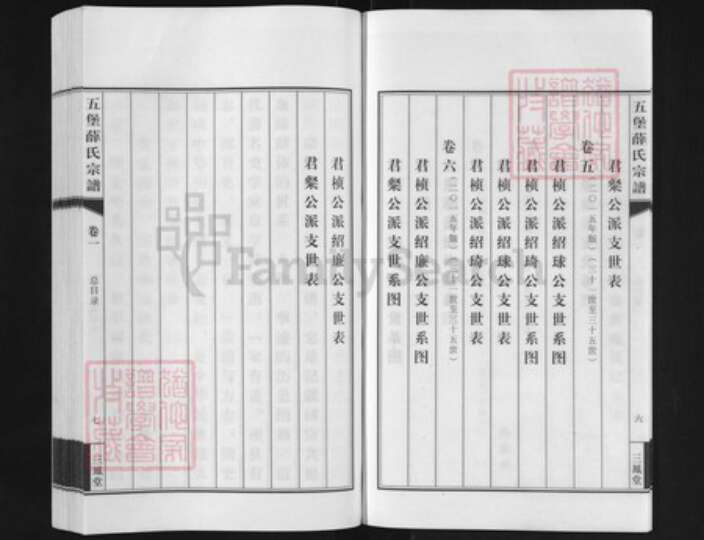 五堡薛氏宗譜
六
三鳳堂
君粲公派支世表
卷五(二〇一五年版)(三十一世至三十五世)
君桢公派绍球公支世系图
君桢公派绍琦公支世系图
君桢公派绍球公支世表
君桢公派绍琦公支世表
卷六(二〇一五年版)(三十一世至三十五世)
君桢公派绍廉公支世系图
君粲公派支世系图
君桢公派绍廉公支世表
君粲公派支世表
五堡薛氏宗譜
卷一
总目录
七
三鳳堂
FamilySearch